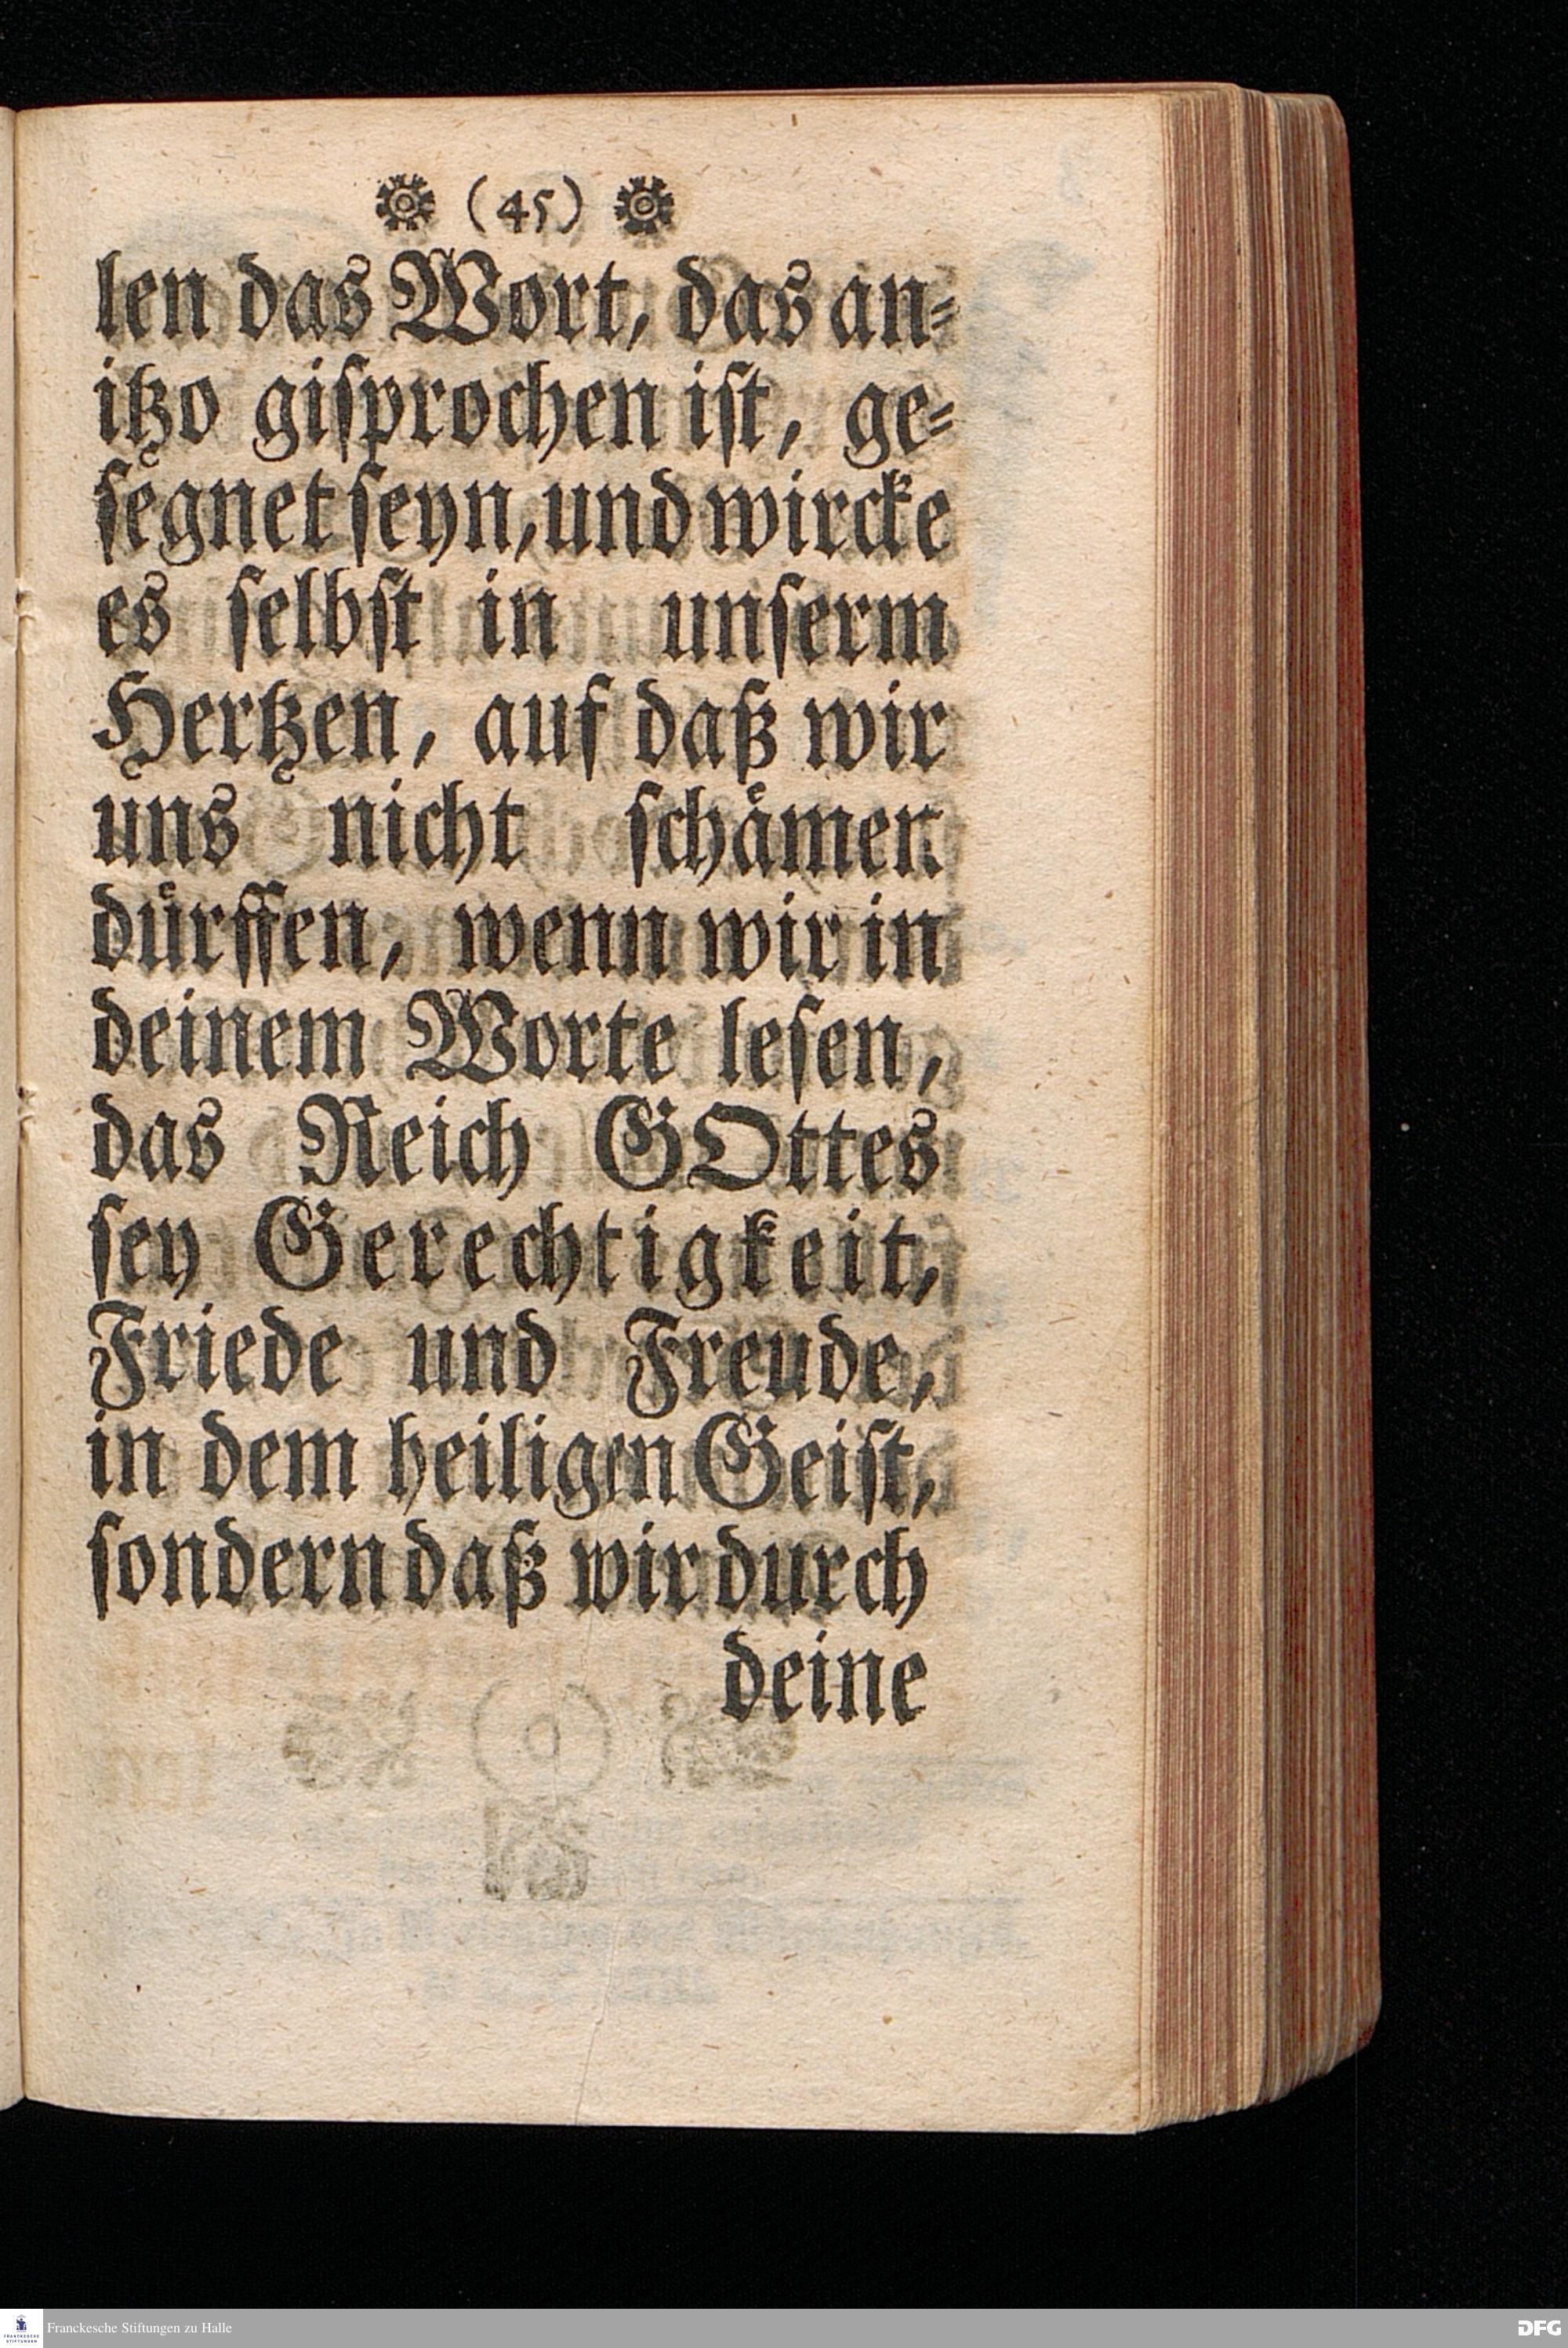 (45)
len das Wort, das an⸗
itzo giſprochen iſt, ge⸗
ſegnet ſeyn, und wircke
es ſelbſt in unſerm
Hertzen, auf daß wir
uns nicht ſchaͤmen
duͤrffen, wenn wir in
deinem Worte leſen,
das Reich GOttes
ſey Gerechtigkeit,
Friede und Freude,
in dem heiligen Geiſt,
ſondern daß wir durch
deine
Franckesche Stiftungen zu Halle
FRANCKESCHE
STIFTUNGEN
DFG